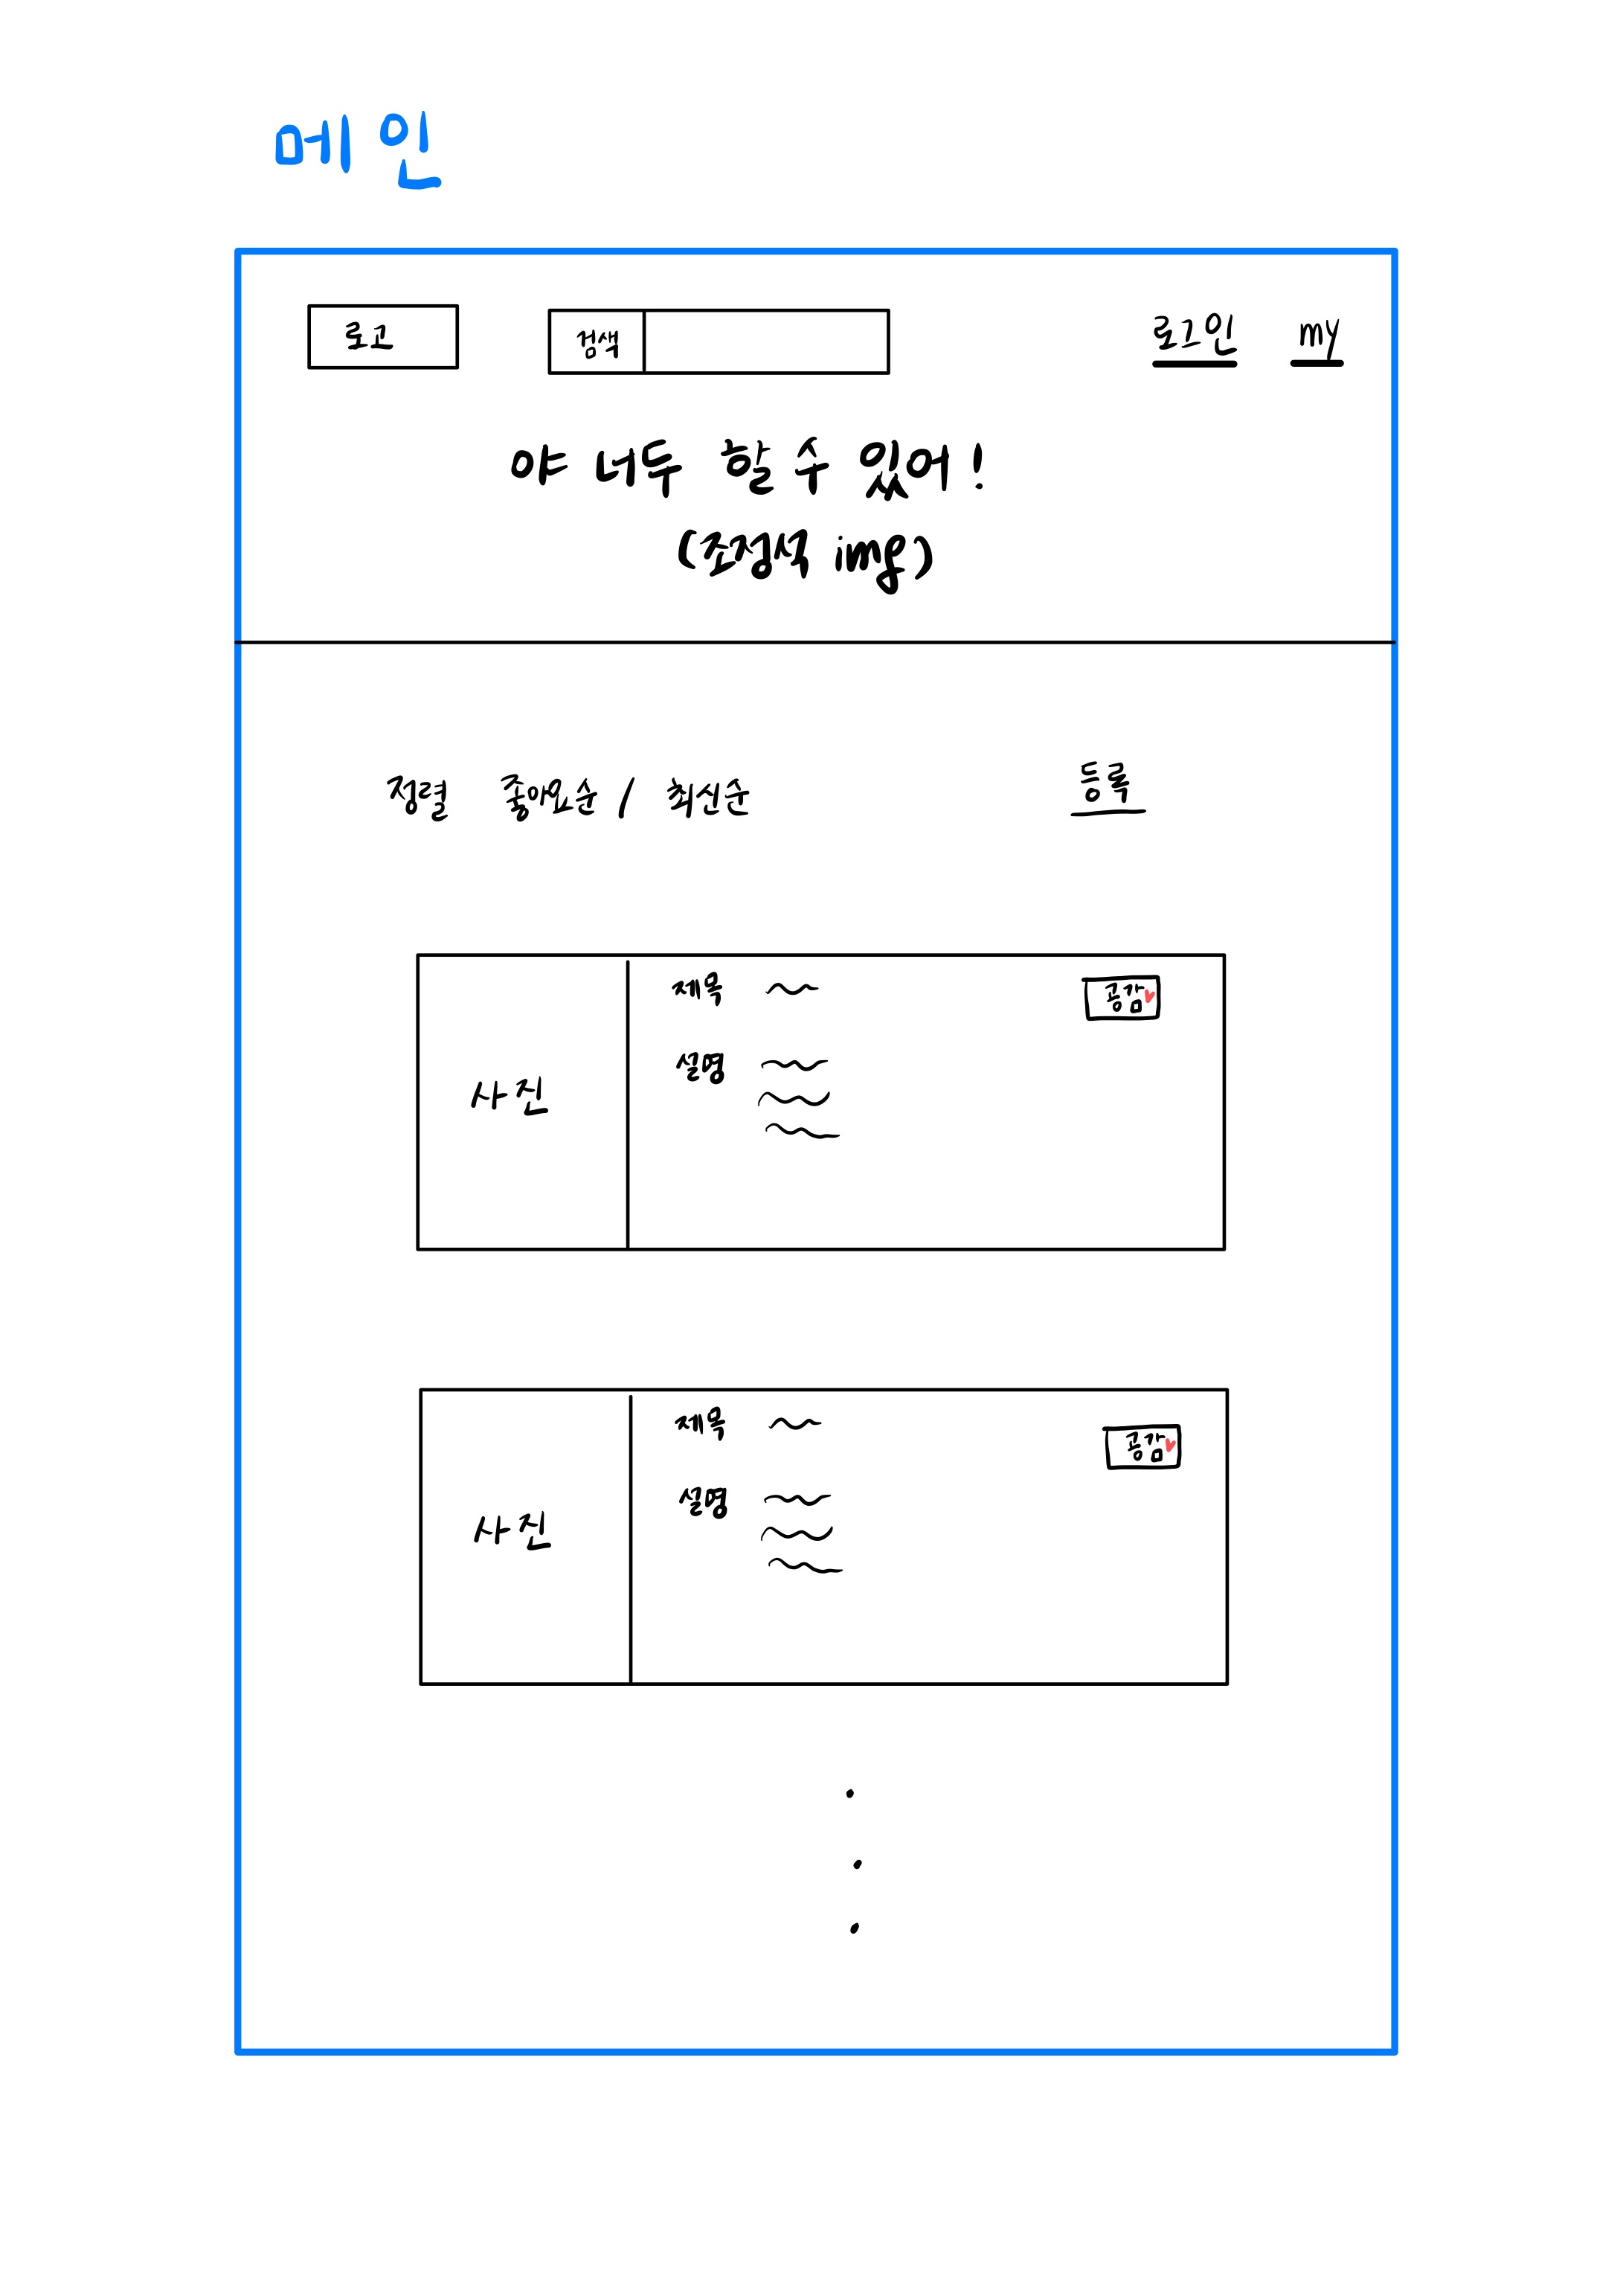 메인
로고 검색 로그인 my
야 너두 할 수 있어!
(조정석 img)
정렬 좋아요순 / 최신순 등록
제목 공감
설명
사진
제목 공감
설명
사진